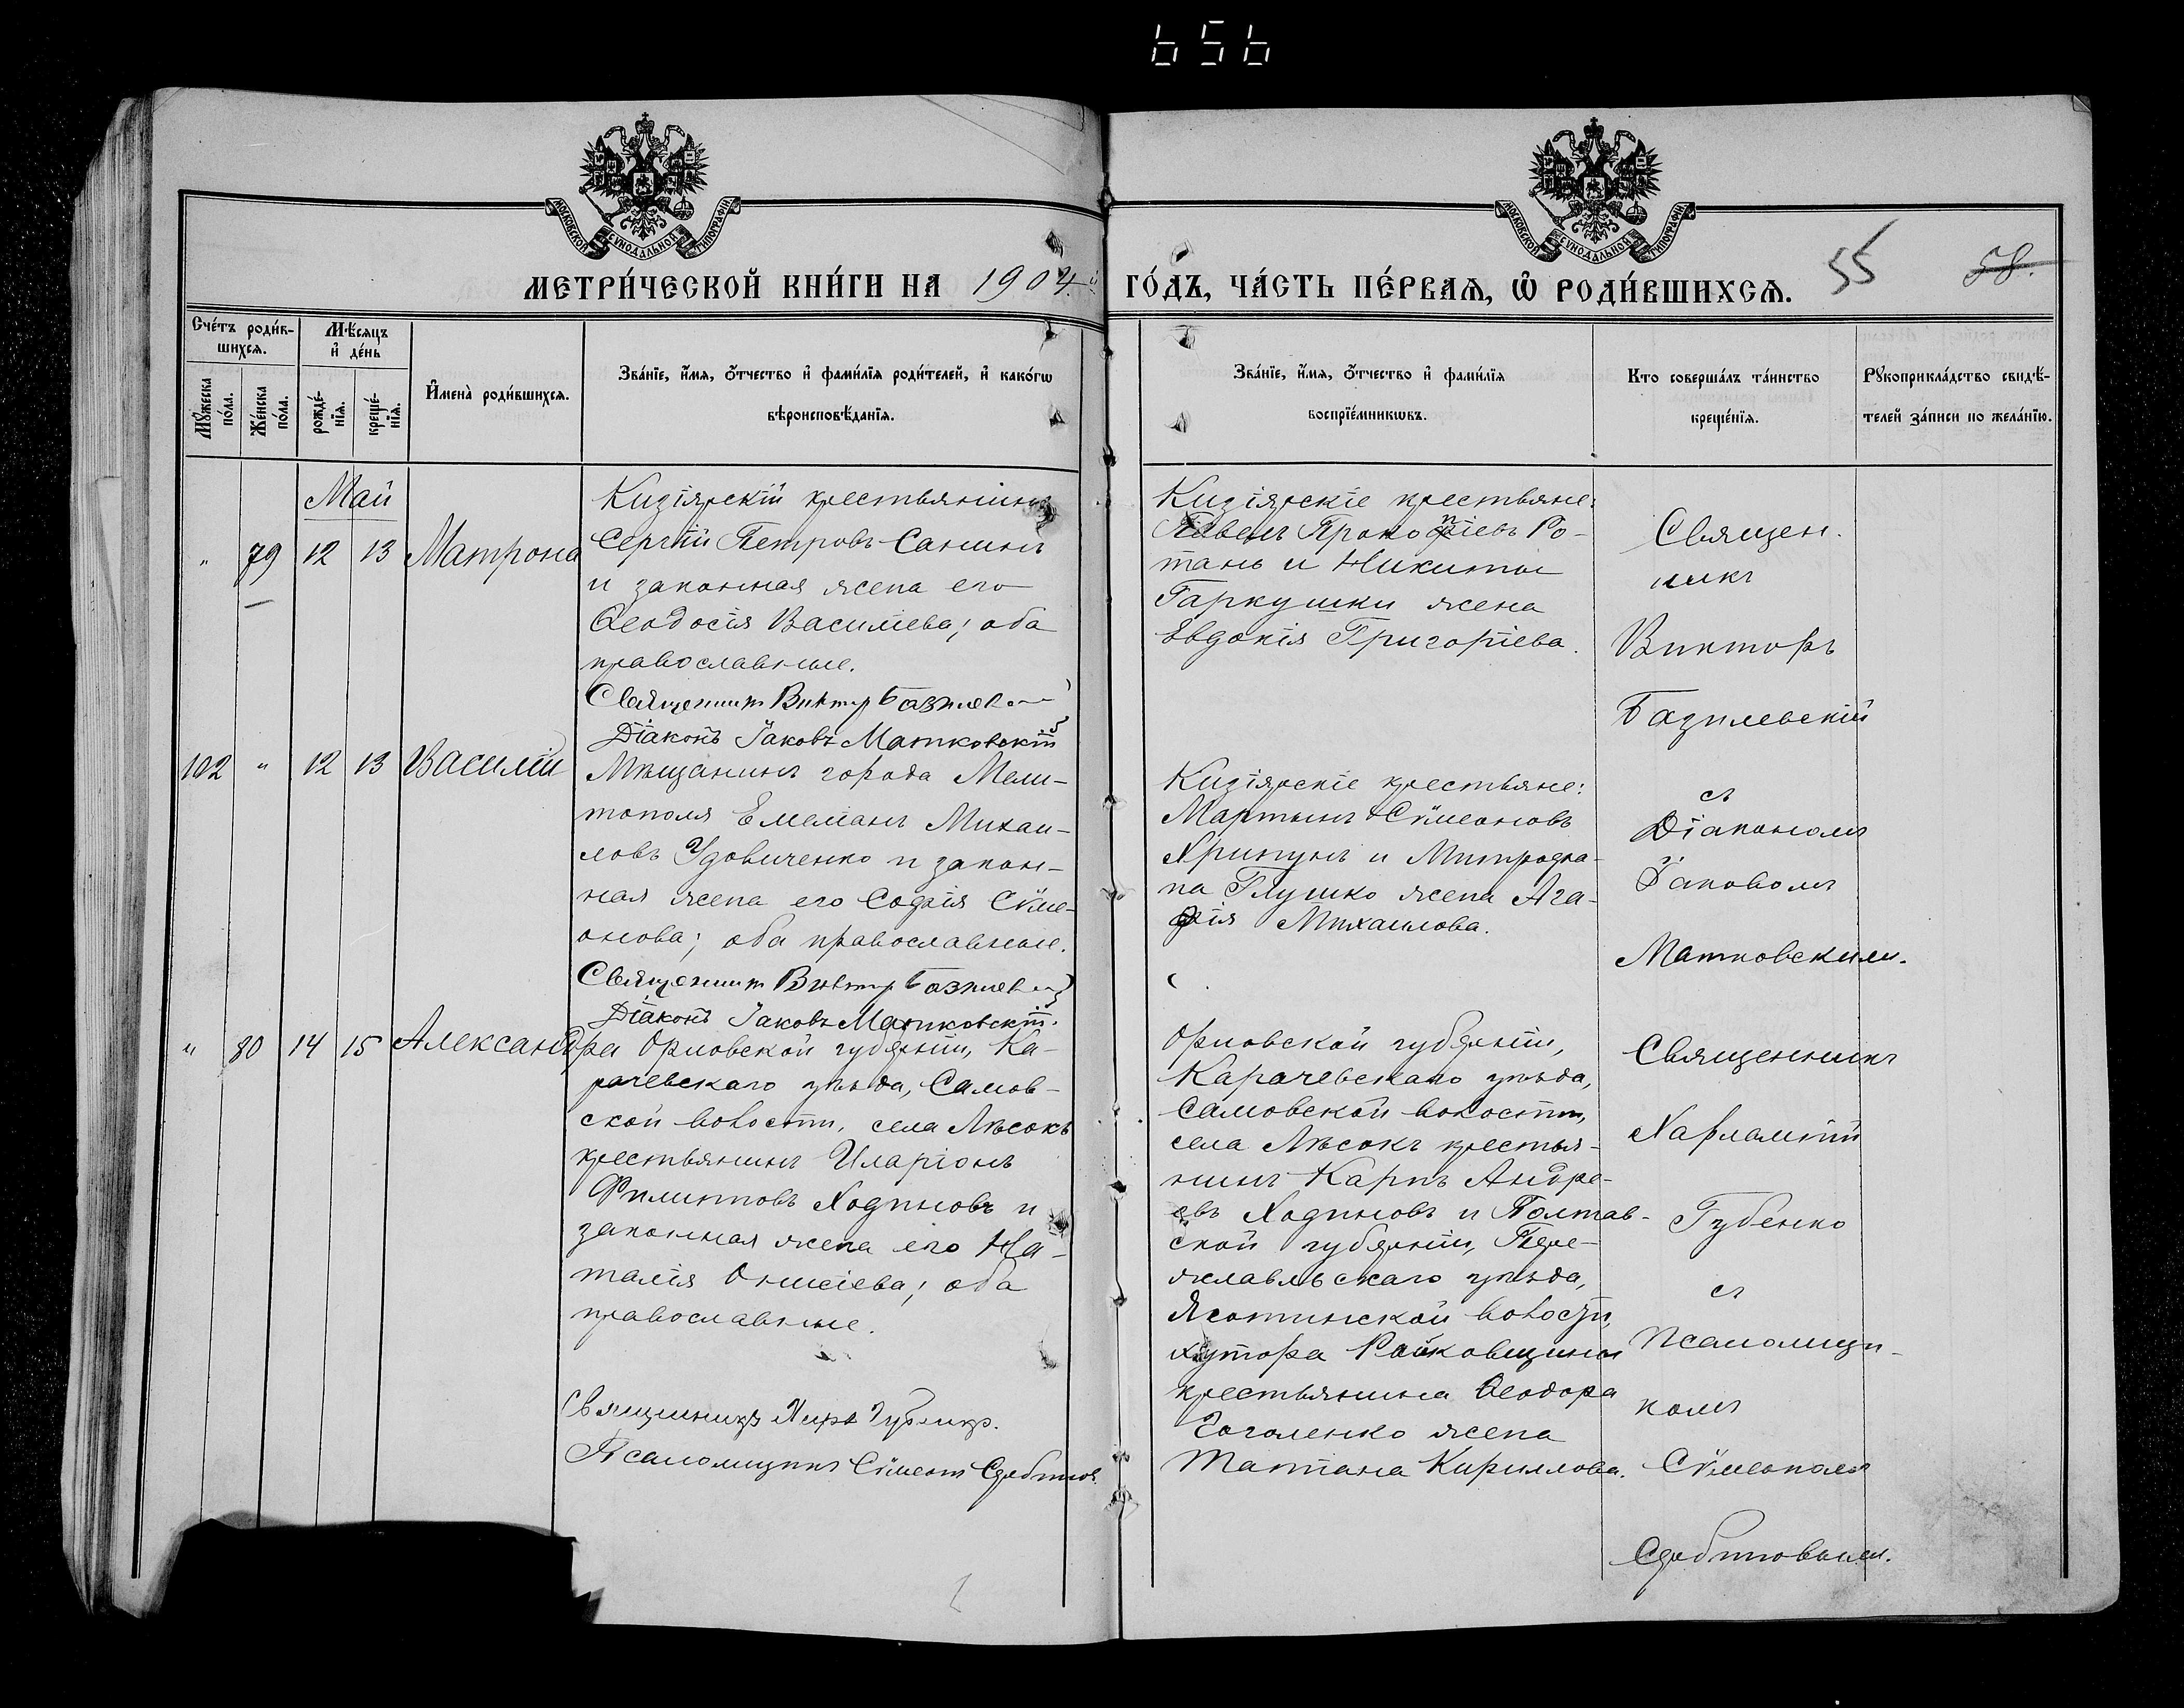 656
МОСКОВСКОЙ СѴНОДАЛЬНОЙ ТИПОГРАФІИ
МОСКОВСКОЙ СѴНОДАЛЬНОЙ ТИПОГРАФІИ
МЕТРИ́ЧЕСКОЙ КНИ́ГИ НА 1904й ГО́ДЪ, ЧА́СТЬ ПЕ́РВАѦ, Ѡ РОДИ́ВШИХСѦ.
55 58.
Сче́тъ роди́в-
шихсѧ.
Мꙋ́жеска
по́ла.
Же́нска
по́ла.
Мѣ́сѧцъ
и҆ де́нь
рожде́-
нїѧ.
креще́-
нїѧ.
И҆мена̀ роди́вшихсѧ.
Зва́нїе, и҆́мѧ, ѻ҆́тчество и҆ фами́лїѧ роди́телей, и҆ како́гѡ
вѣроисповѣ́данїѧ.
Зва́нїе, и҆́мѧ, ѻ҆́тчество и҆ фами́лїѧ
воспрїе́мникѡвъ.
Кто соверша́лъ та́инство
креще́нїѧ.
Рꙋкоприкла́дство свидѣ́-
телей за́писи по жела́нїю.
Май
" 79 12 13 Матрона
Кизіярскій крестьянинъ
Сергій Петровъ Санинъ
и законная жена его
Ѳеодосія Василіева; оба
православные.
Священникъ Викторъ Базилев
Діаконъ Іаковъ Матковскій
Кизіярскіе крестьяне:
Павелъ Прокопіевъ Ро-
тань и Никиты
Гаркушки жена
Евдокія Григоріева.
Священ-
никъ
Викторъ
Базилевскій
съ
Діакономъ
Іаковомъ
Матковскимъ.
102 " 12 13 Василій
Мѣщанинъ города Мели-
тополя Емеліанъ Михаи-
ловъ Удовиченко и закон-
ная жена его Софія Сѵме-
онова; оба православные.
Священникъ Викторъ Базилев
Діаконъ Іаковъ Матковскій.
Кизіярскіе крестьяне:
Мартынъ Сѵмеоновъ
Хрипунъ и Митрофа-
на Глушко жена Ага-
фія Михаилова.
" 80 14 15 Александра
Орловской губерніи, Ка-
рачевскаго уѣзда, Самов-
ской волости, села Лѣсокъ
крестьянинъ Иларіонъ
Филипповъ Ходиновъ и
законная жена его На-
талія Онисіева; оба
православные.
Священникъ Харл Губенко.
Псаломщикъ Сѵмеонъ
Орловской губерніи,
Карачевскаго уѣзда,
Самовской волости,
села Лѣсокъ крестья-
нинъ Карпъ Андре-
евъ Ходиновъ и Полтав-
ской губерніи, Пере-
яславльскаго уѣзда,
Яготинской волости,
хутора Райковщины
крестьянина Ѳеодора
Гоголенко жена
Татіана Кириллова.
Священникъ
Харлампій
Губенко
съ
Псаломщи-
комъ
Сѵмеономъ